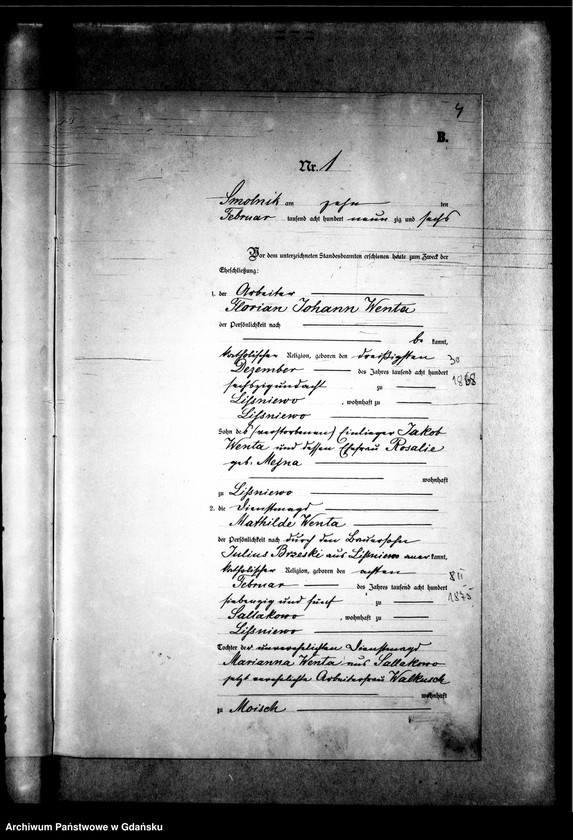 4
B.
Nr. 1
Smolnik am zehn ten
Februar tausend acht hundert neun zig und sechs
Vor dem unterzeichneten Standesbeamten erschienen heute zum Zweck der
Eheschließung:
1. der Arbeiter
Florian Johann Wenta
der Persönlichkeit nach
be kannt,
katholischer Religion, geboren den dreißigsten 30
Dezember des Jahres tausend acht hundert 1868
sechszigundacht zu
Lissniewo, wohnhaft zu
Lissniewo
Sohn des (verstorbenen) Einlieger Jakob
Wenta und dessen Ehefrau Rosalie
geb. Mejna
wohnhaft
zu Lissniewo
2. die Dienstmagd
Mathilde Wenta
der Persönlichkeit nach durch den Bauersohn
Julius Brzeske aus Lissniewo aner kannt,
katholischer Religion, geboren den achten 8 II
Februar des Jahres tausend acht hundert 1875
siebenzig und fünf zu
Sallakowo, wohnhaft zu
Lissniewo
Tochter der unverehelichten Dienstmagd
Marianna Wenta aus Sallakowo
jetzt verehelichte Arbeiterfrau Walkusch
wohnhaft
zu Moisch
Archiwum Państwowe w Gdańsku